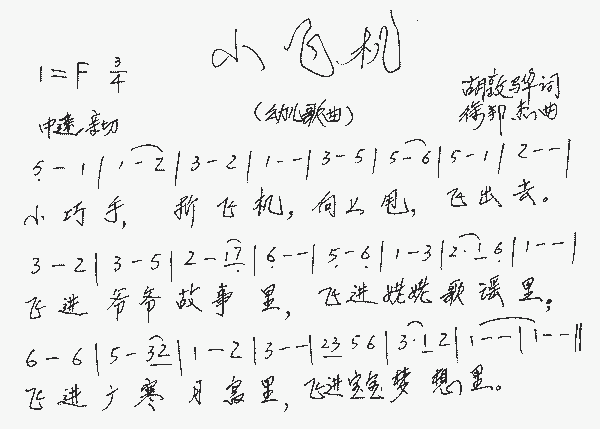 小飞机
1=F 3/4
(幼儿歌曲)
胡敦骅词
徐邦杰曲
中速 亲切
5 - 1 | 1 - 2 | 3 - 2 | 1 - - | 3 - 5 | 5 - 6 | 5 - 1 | 2 - - |
小巧手,折飞机,向上甩,飞出去。
3 - 2 | 3 - 5 | 2 - 17 | 6 - - | 5 - 6 | 1 - 3 | 2·16 | 1 - - |
飞进爷爷故事里,飞进姥姥歌谣里;
6 - 6 | 5 - 32 | 1 - 2 | 3 - - | 23 5 6 | 3·12 | 1 - - | 1 - - ‖
飞进广寒月宫里,飞进宝宝梦想里。